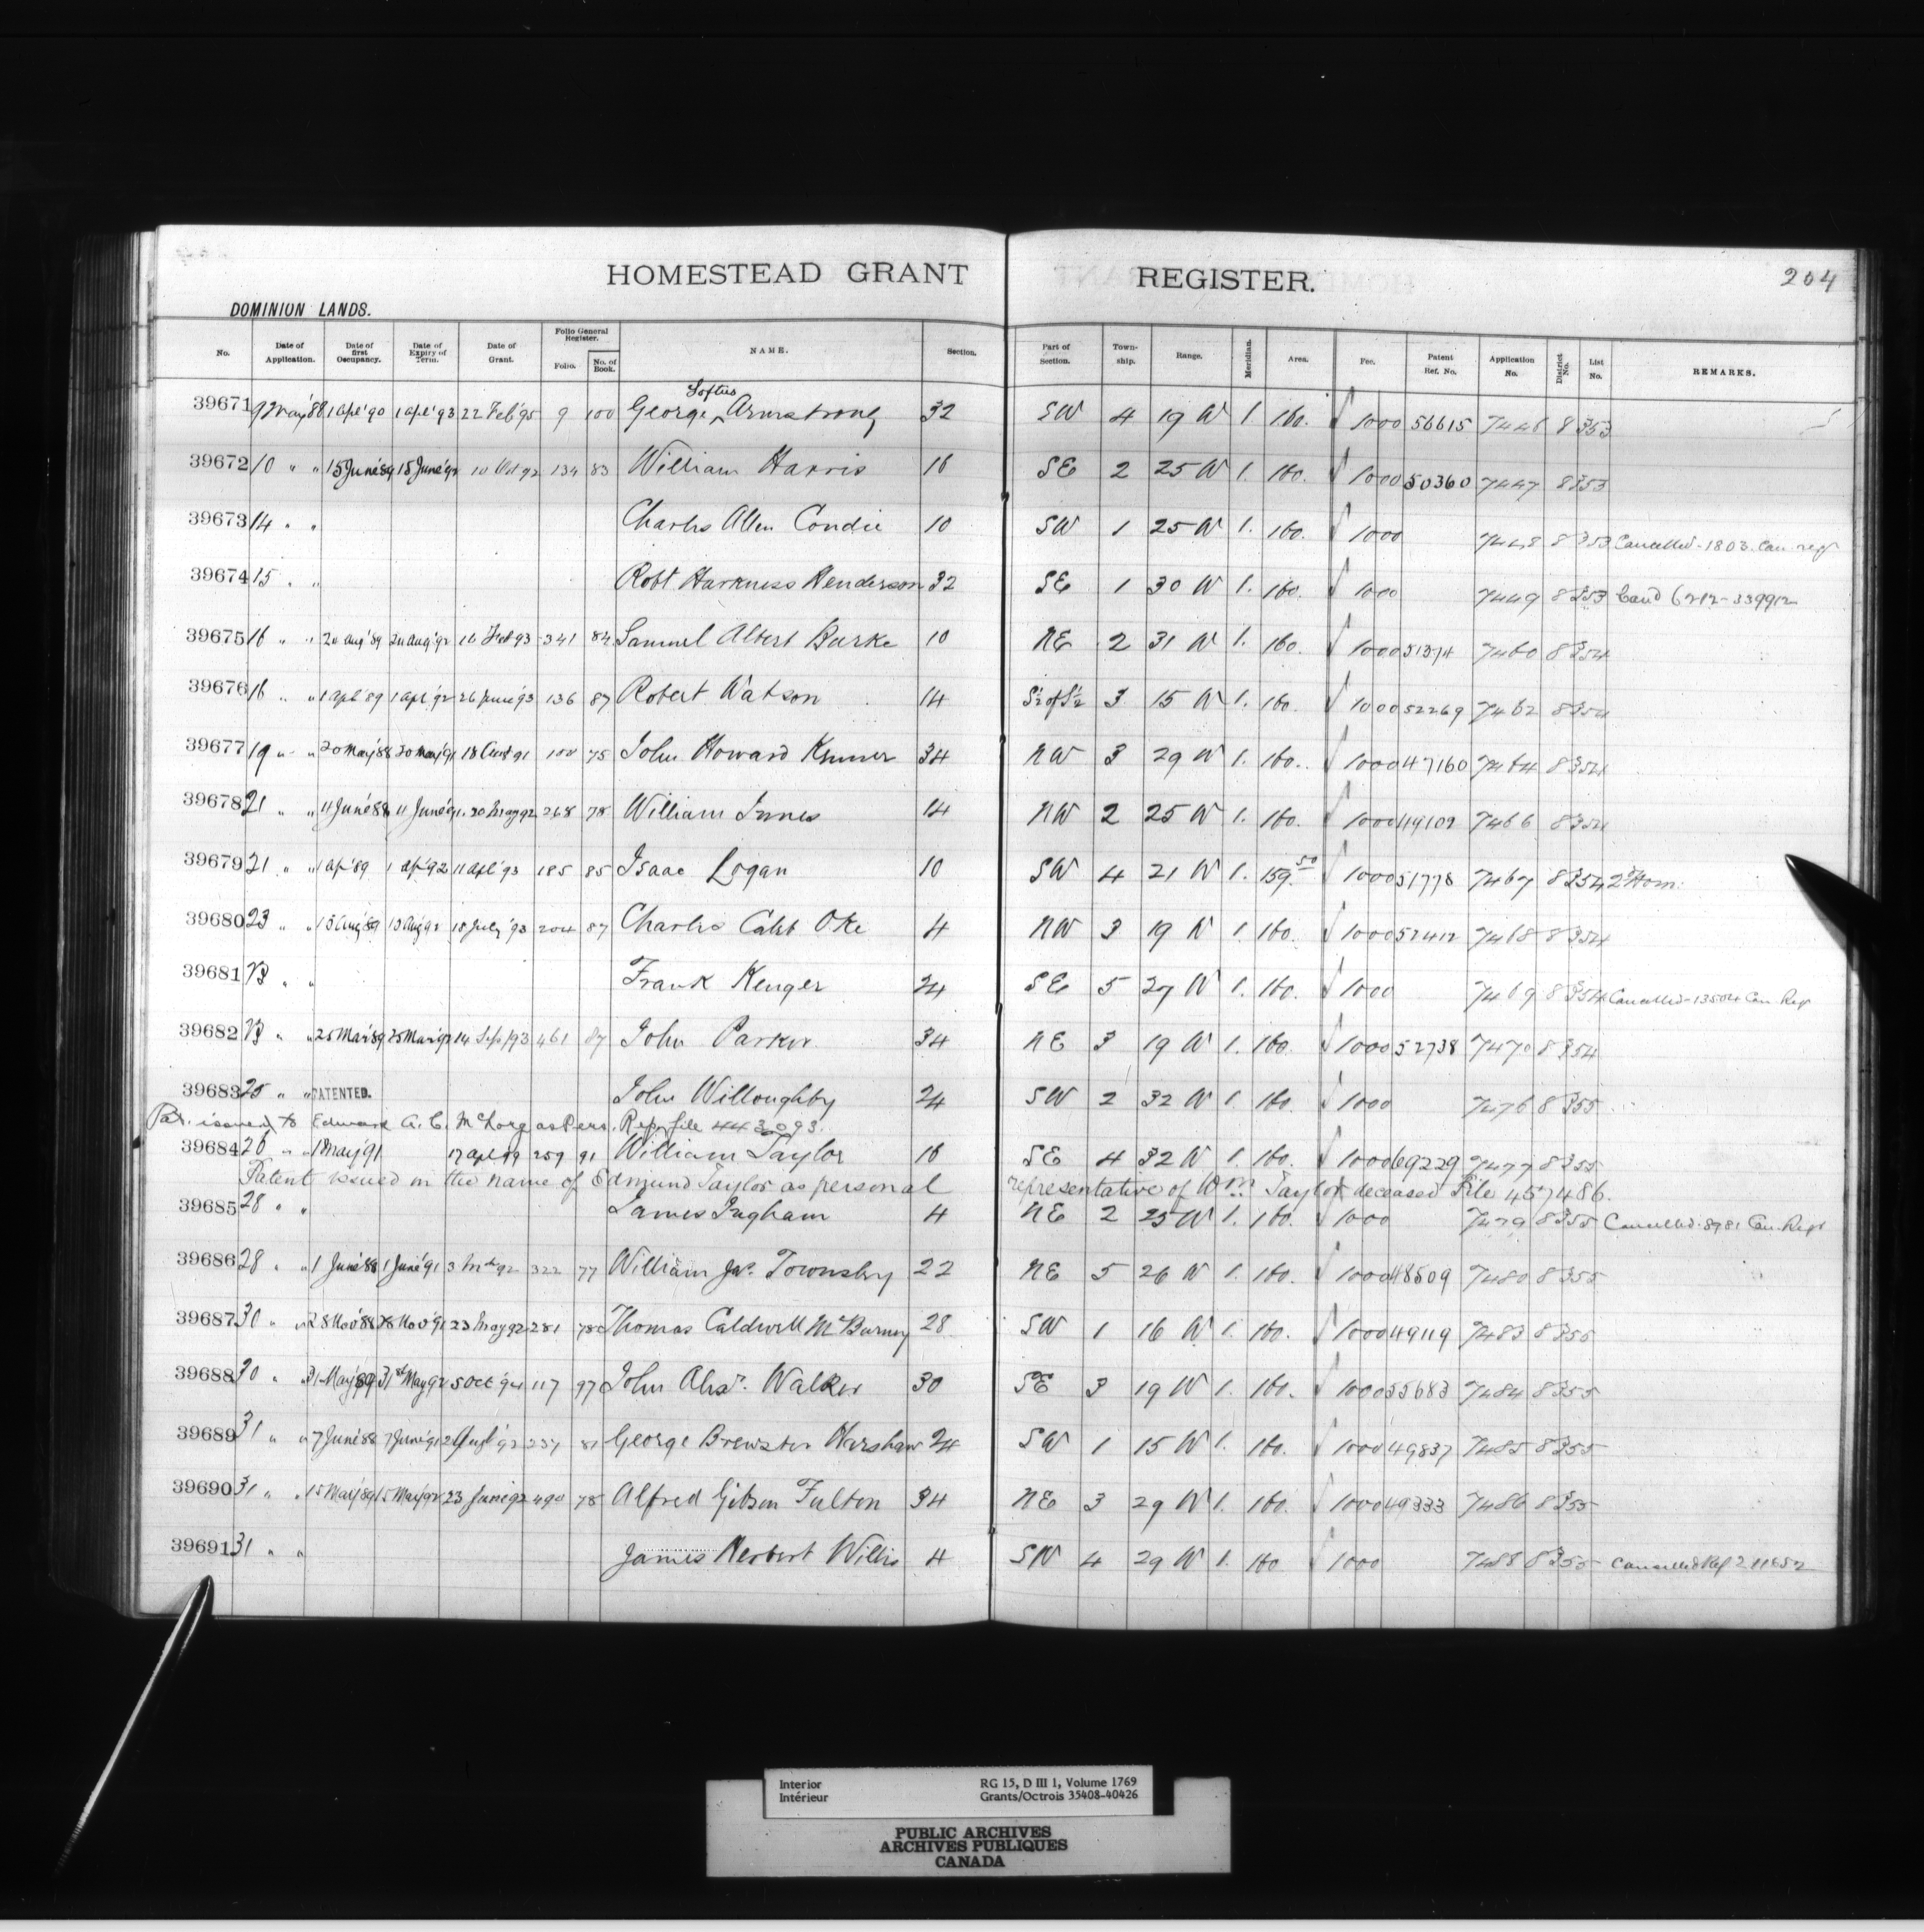 HOMESTEAD GRANT REGISTER. 204
DOMINION LANDS.
No. Date of Application. Date of first Occupancy. Date of Expiry of Term. Date of Grant. Folio General Register. Folio. No. of Book. NAME. Section. Part of Section. Town-ship. Range. Meridian. Area. Fee. Patent Ref. No. Application No. District No. List No. REMARKS.
39671 9 May '88 1 Apl '90 1 Apl '93 22 Feb '95 9 100 George Loftus Armstrong 32 SW 4 19 W 1. 160. 1000 56615 7446 8 353
39672 10 " " 15 June '89 15 June '92 10 Oct 92 134 83 William Harris 16 SE 2 25 W 1. 160. 1000 50360 7447 8 353
39673 14 " " Charles Allen Condie 10 SW 1 25 W 1. 160. 1000 7448 8 353 Cancelled - 1803 Can regr
39674 15 " " Robt Harkness Henderson 32 SE 1 30 W 1. 160. 1000 7449 8 353 Cand 6212-339912
39675 16 " " 20 Aug '89 20 Aug '92 16 Feb 93 341 84 Samuel Albert Burke 10 NE 2 31 W 1. 160. 1000 51374 7460 8 354
39676 16 " " 1 Apl '89 1 Apl '92 26 June '93 136 87 Robert Watson 14 S½ of S½ 3 15 W 1. 160. 1000 52269 7462 8 354
39677 19 " " 20 May '88 20 May '91 18 Aug 91 100 75 John Howard 34 NW 3 29 W 1. 160. 1000 47160 7464 8 354
39678 21 " " 11 June '88 11 June '91 20 May 92 268 78 William Innes 14 NW 2 25 W 1. 160. 1000 49102 7466 8 354
39679 21 " " 1 Ap '89 1 Ap '92 11 Apl '93 185 85 Isaac Logan 10 SW 4 21 W 1. 159.50 1000 51778 7467 8 354 2d Hom.
39680 23 " " 15 Aug '89 15 Aug 92 18 July '93 204 87 Charles Caleb Oke 4 NW 3 19 W 1. 160. 1000 52412 7468 8 354
39681 23 " " Frank Kenger 24 SE 5 27 W 1. 160. 1000 7469 8 354 Cancelled - 13504 Can Regr
39682 23 " " 25 Mar '89 25 Mar '92 14 Sep '93 461 87 John Parker 34 NE 3 19 W 1. 160. 1000 52738 7470 8 354
39683 25 " " PATENTED. John Willoughby 24 SW 2 32 W 1. 160. 1000 7476 8 355
Pat. issued to Edward A. C. McLorg as Pers. Rep. file 443093.
39684 26 " " 1 May '91 17 Apl 99 259 91 William Taylor 16 SE 4 32 W 1. 160. 1000 69229 7477 8 355
Patent issued in the name of Edmund Taylor as personal representative of Wm. Taylor deceased File 457486.
39685 28 " " James Ingham 4 NE 2 25 W 1. 160. 1000 7479 8 355 Cancelled 8981 Can. Regr
39686 28 " " 1 June '88 1 June '91 3 Mch 92 322 77 William Jas. Townsley 22 NE 5 26 W 1. 160. 1000 48509 7480 8 355
39687 30 " " 28 Nov '88 28 Nov '91 23 May 92 281 78 Thomas Caldwell McBurney 28 SW 1 16 W 1. 160. 1000 49119 7483 8 355
39688 30 " " 31 May '89 31st May 92 5 Oct '94 117 97 John Alexr. Walker 30 SE 3 19 W 1. 160. 1000 55683 7484 8 355
39689 31 " " 7 June '88 7 June '91 Aug '92 237 81 George Brewster Harshaw 24 SW 1 15 W 1. 160. 1000 49837 7485 8 355
39690 31 " " 15 May '89 15 May '92 23 June 92 490 78 Alfred Gibson Fulton 34 NE 3 29 W 1. 160. 1000 49333 7486 8 355
39691 31 " " James Herbert Willis 4 SW 4 29 W 1. 160 1000 7488 8 355 Cancelled Ref 211652
Interior RG 15, D III 1, Volume 1769
Intérieur Grants/Octrois 35408-40426
PUBLIC ARCHIVES
ARCHIVES PUBLIQUES
CANADA